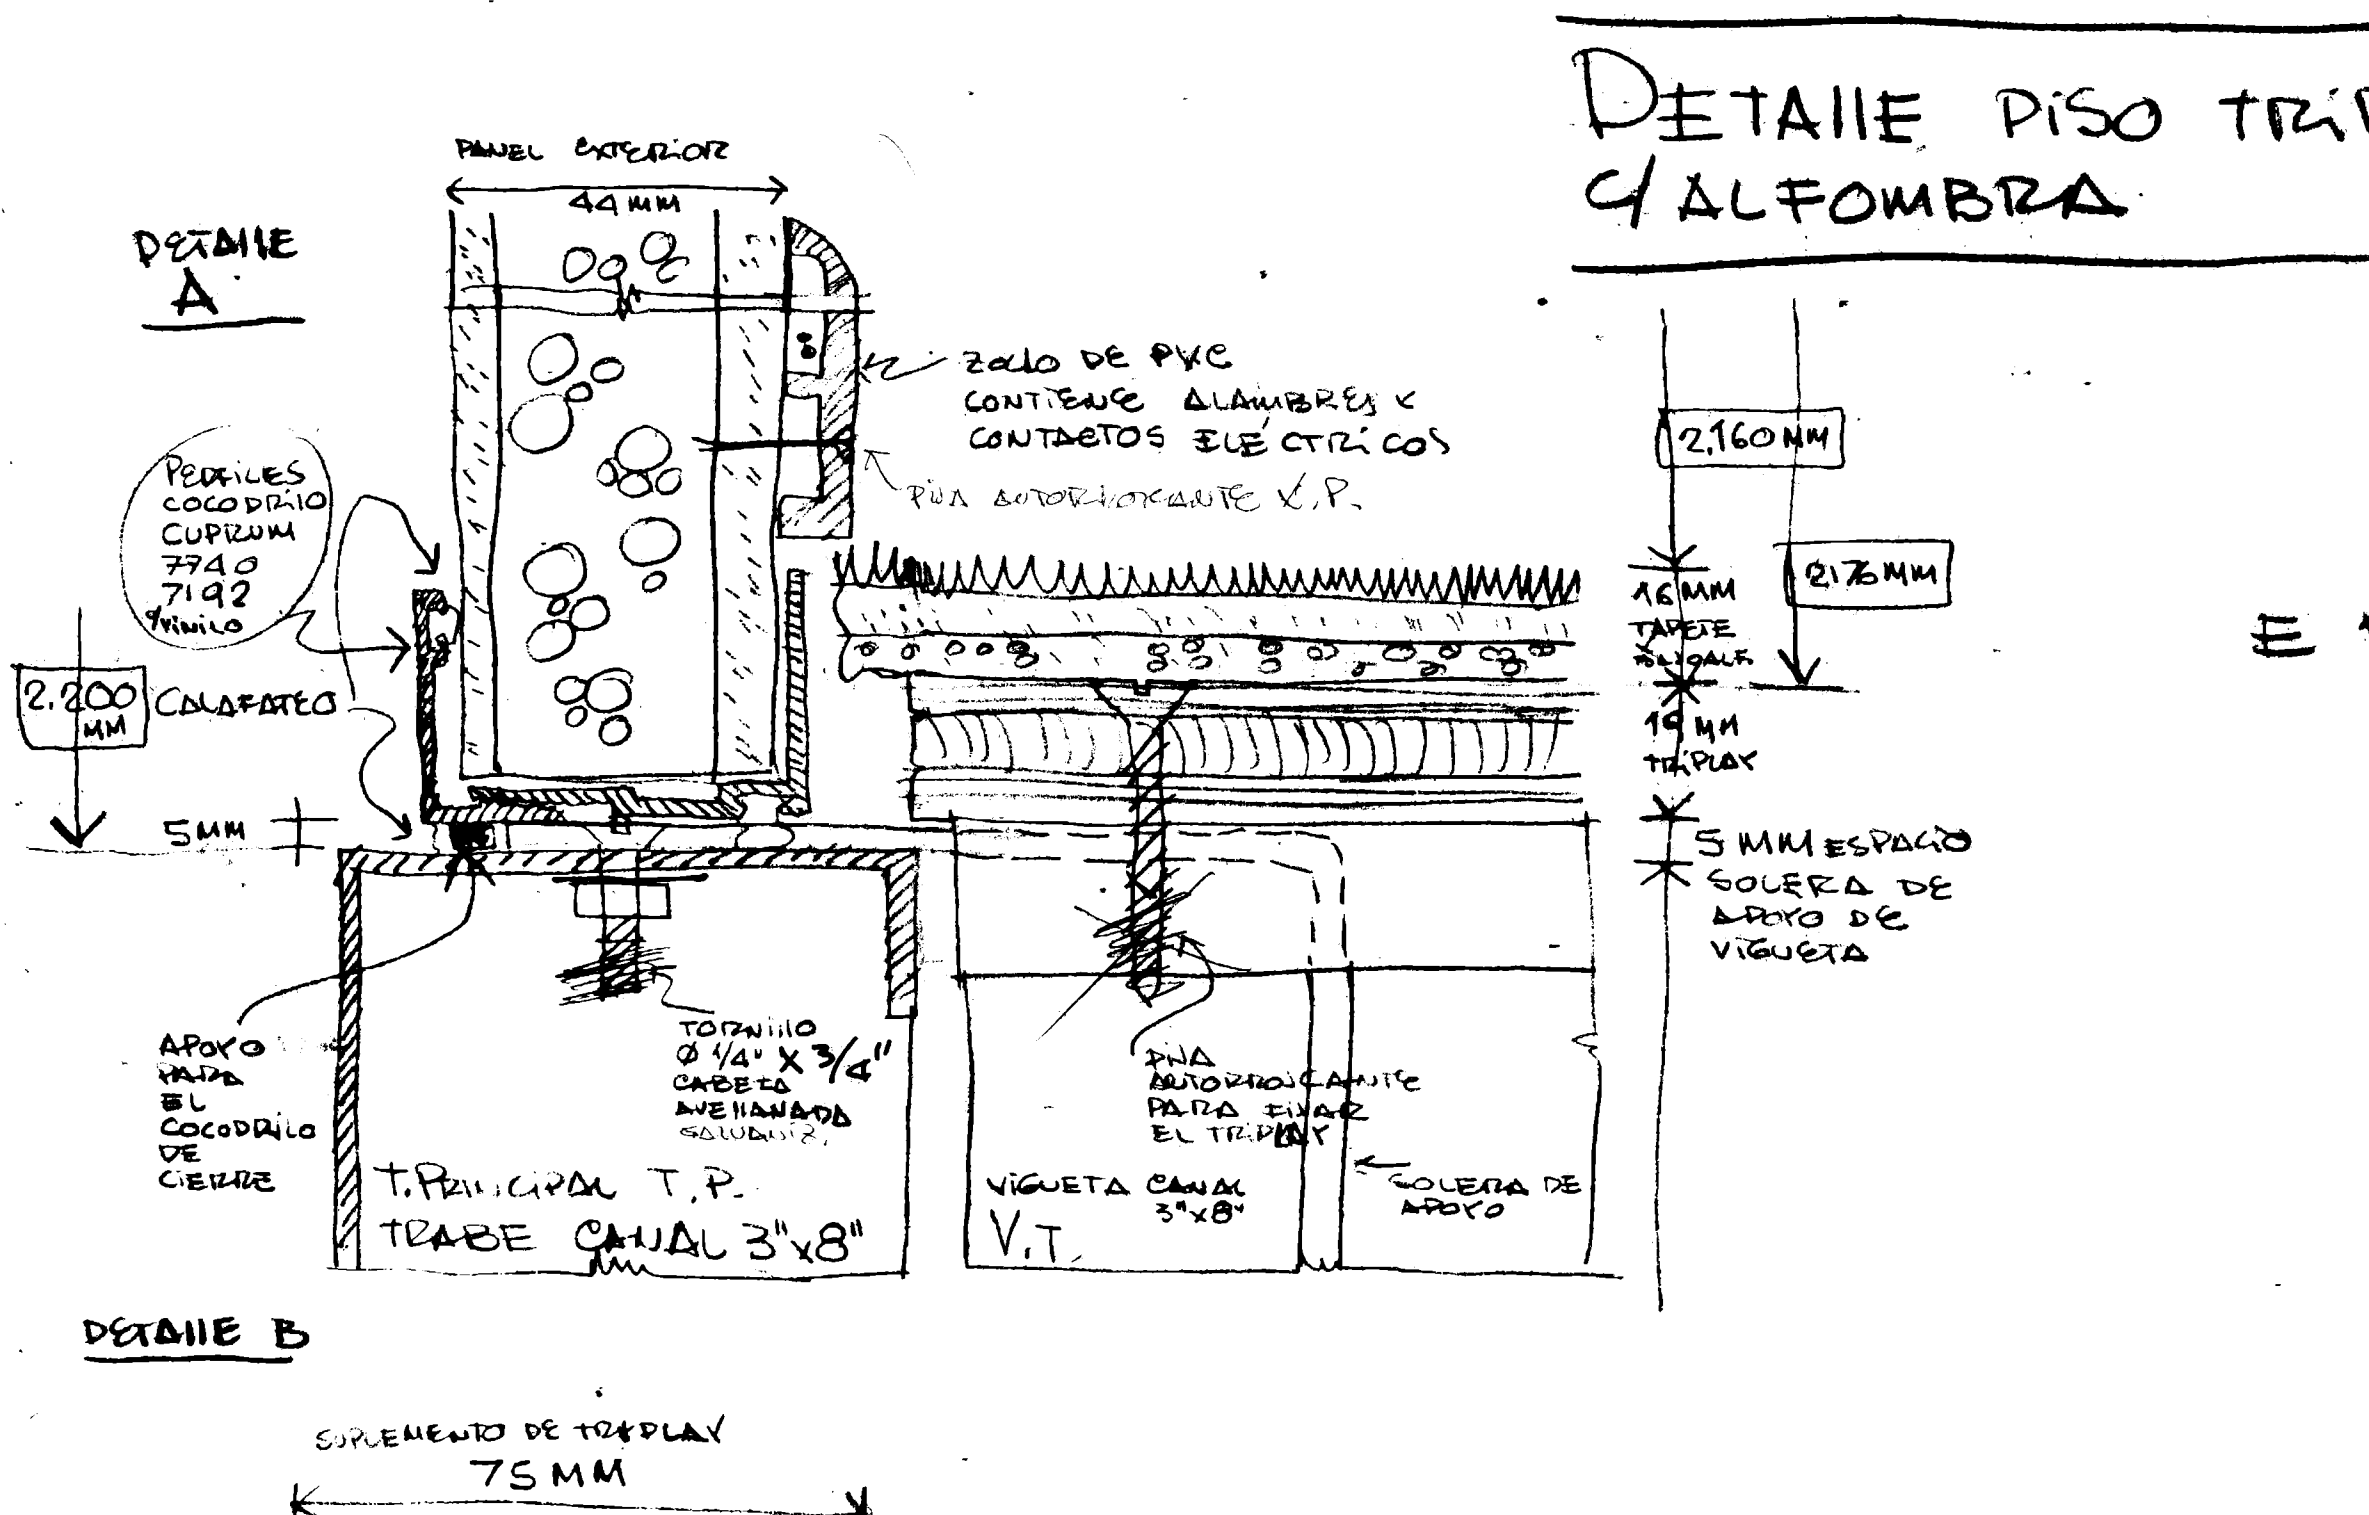 DETALLE PISO TRIP
C/ ALFOMBRA
PANEL EXTERIOR
44 MM
DETALLE
A
ZOCLO DE PVC
CONTIENE ALAMBRES Y
CONTACTOS ELÉCTRICOS
PIJA AUTORROSCANTE X.P.
PERFILES
COCODRILO
CUPRUM
7740
7192
C/VINILO
2.200
MM
CALAFATEO
5 MM
2.160 MM
2176 MM
16 MM
TAPETE
16 MM
TRIPLAY
5 MM ESPACIO
SOLERA DE
APOYO DE
VIGUETA
E
APOYO
PARA
EL
COCODRILO
DE
CIERRE
TORNILLO
Ø 1/4" X 3/4"
CABEZA
AVELLANADA
GALVANIZ.
T. PRINCIPAL T.P.
TRABE CANAL 3"x8"
PIJA
AUTORROSCANTE
PARA FIJAR
EL TRIPLAY
VIGUETA CANAL
3"x8"
V.T.
SOLERA DE
APOYO
DETALLE B
SUPLEMENTO DE TRIPLAY
75 MM